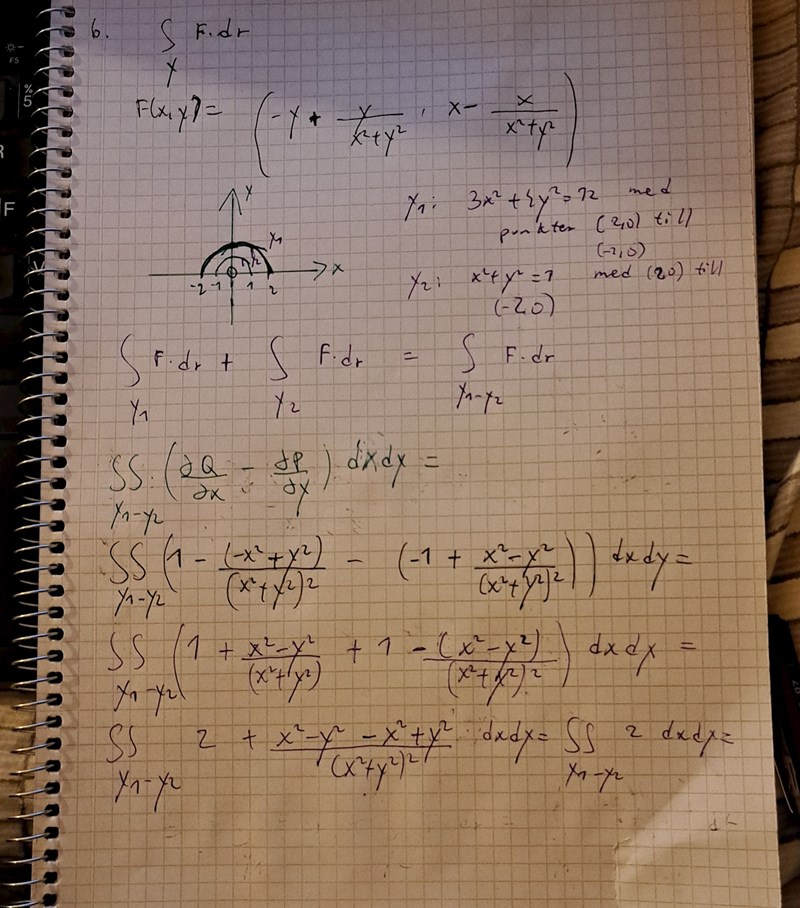 6. ∫ F·dr
γ
F(x,y) = (-y + y/(x²+y²), x - x/(x²+y²))
y
γ₁
γ₂
x
-2 -1 1 2
γ₁: 3x² + 4y² = 12 med
punkter (2,0) till
(-2,0)
γ₂: x²+y² = 1 med (2,0) till
(-2,0)
∫ F·dr + ∫ F·dr = ∫ F·dr
γ₁ γ₂ γ₁-γ₂
∫∫ (∂Q/∂x - ∂P/∂y) dxdy =
γ₁-γ₂
∫∫ (1 - (-x²+y²)/(x²+y²)² - (-1 + (x²-y²)/(x²+y²)²)) dxdy =
γ₁-γ₂
∫∫ (1 + (x²-y²)/(x²+y²) + 1 - (x²-y²)/(x²+y²)²) dxdx =
γ₁-γ₂
∫∫ 2 + (x²-y²-x²+y²)/(x²+y²)² dxdy = ∫∫ 2 dxdy =
γ₁-γ₂ γ₁-γ₂